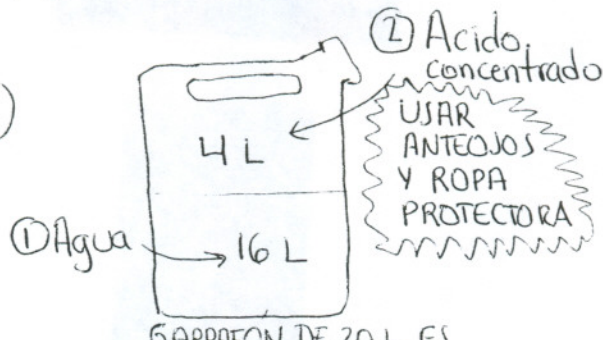 )
② Acido
concentrado
USAR
ANTEOJOS
Y ROPA
PROTECTORA
4 L
① Agua
16 L
GARRAFON DE 20 L ES